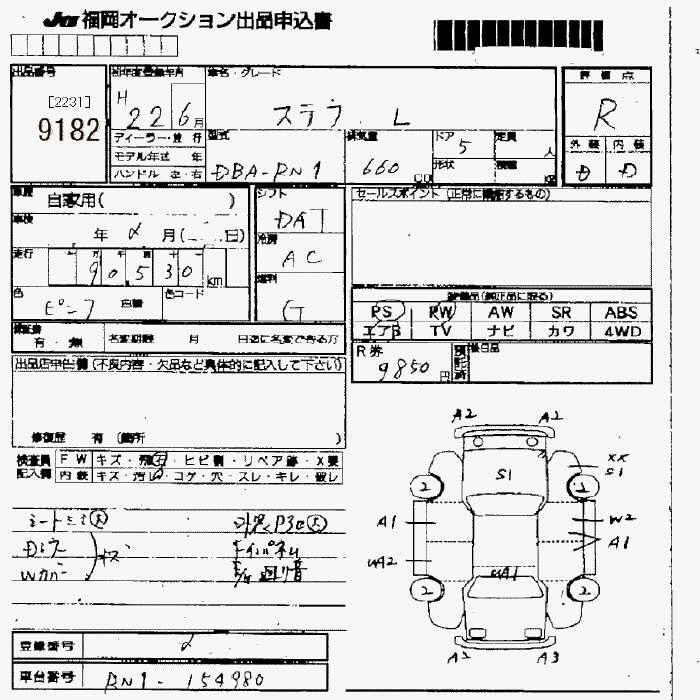 JU 福岡オークション出品申込書
出品番号
[2231]
9182
初年度登録年月
H 22 6月
車名・グレード
ステラ L
評価点
R
外装 内装
D D
ディーラー・並行
モデル年式 年
ハンドル 左・右
型式
DBA-RN1
排気量
660 CC
ドア 5
形状
定員 人
積載 KG
車歴 自家用( )
車検 年 月( 日)
走行 90530 km
色 ピンク
色コード
シフト DAT
冷房 AC
燃料 G
セールスポイント (正常に機能するもの)
装備品(純正品に限る)
PS PW AW SR ABS
エアB TV ナビ カワ 4WD
保証書 有・無
名変期限 月 日迄に名変できる方
R券 9850円
預託済
後日品
出品店申告欄 (不良内容・欠品など具体的に記入して下さい)
修復歴 有 (箇所 )
検査員記入欄
FW キズ・飛石・ヒビ割・リペア跡・X要
内装 キズ・汚レ・コゲ・穴・スレ・キレ・破レ
シートシミ大
キズ
A2 A2
S1
XX
S1
2 2
A1 W2
A1
UA2 UA1
2 2
A2 A3
登録番号
車台番号 RN1-154980